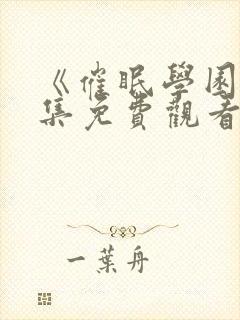 《催眠學園
集免費觀看
一葉舟